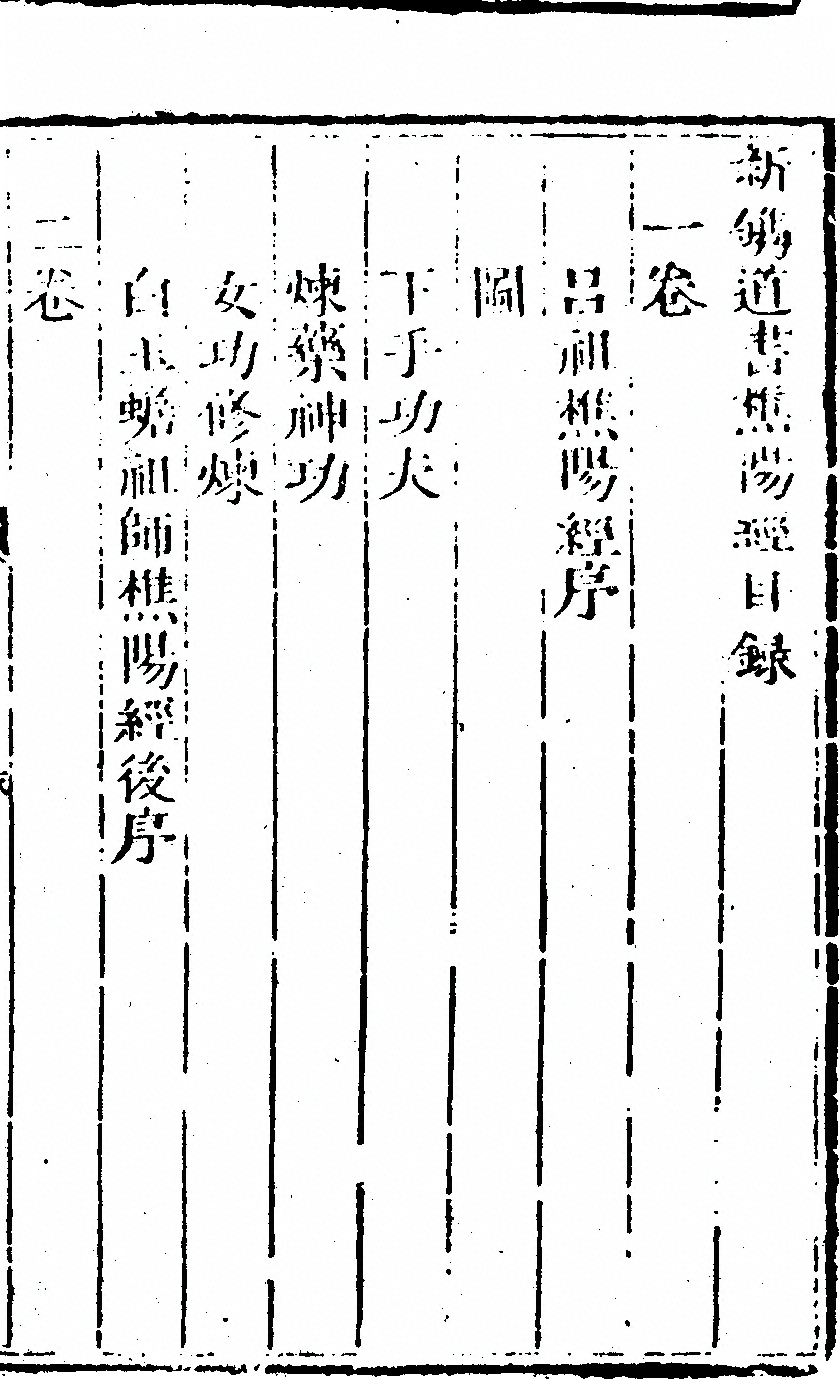 新鐫道書樵陽經目録
一卷
呂祖樵陽經序
圖
下手功夫
煉藥神功
女功修煉
白玉蟾祖師樵陽經後序
二卷